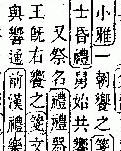 小雅一朝饗之箋
士昏禮舅姑共饗
又祭名禮禮器
王旣右饗之箋文
與響通前漢禮樂